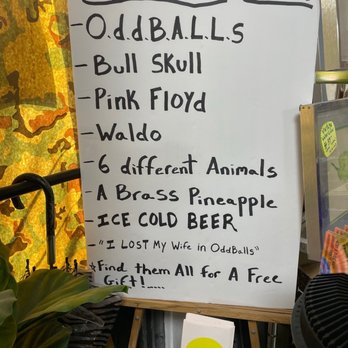 - O.d.d.B.A.L.L.S
- Bull Skull
- Pink Floyd
- Waldo
- 6 different Animals
- A Brass Pineapple
- ICE COLD BEER
- "I Lost My Wife in OddBalls"
* Find them All for A Free
Gift!.....